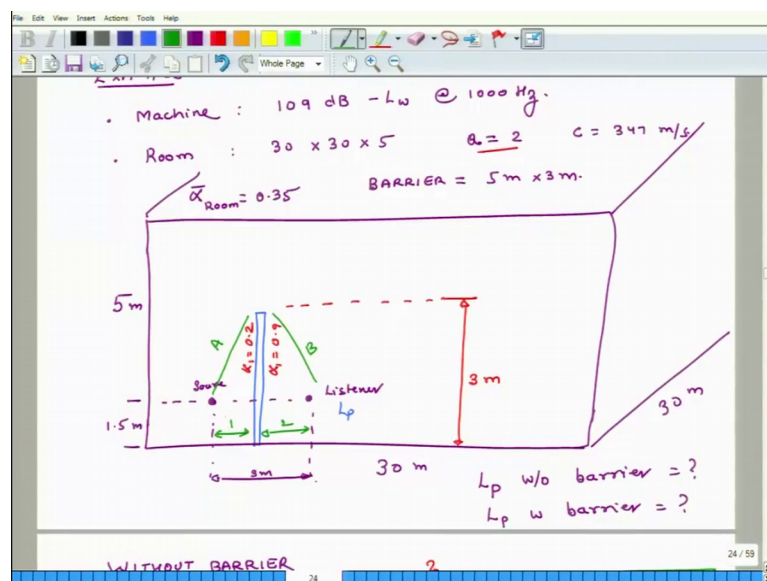 File Edit View Insert Actions Tools Help
B I
Whole Page
• Machine : 109 dB - Lw @ 1000 Hz.
• Room : 30 x 30 x 5 Q = 2 C = 347 m/s
ᾱRoom = 0.35 BARRIER = 5m x 3m.
5m
A
α1 = 0.2
α1 = 0.9
B
3 m
Source
Listener
Lp
1.5m
1
2
3m
30 m
30 m
Lp w/o barrier = ?
Lp w barrier = ?
24 / 59
WITHOUT BARRIER 2
24